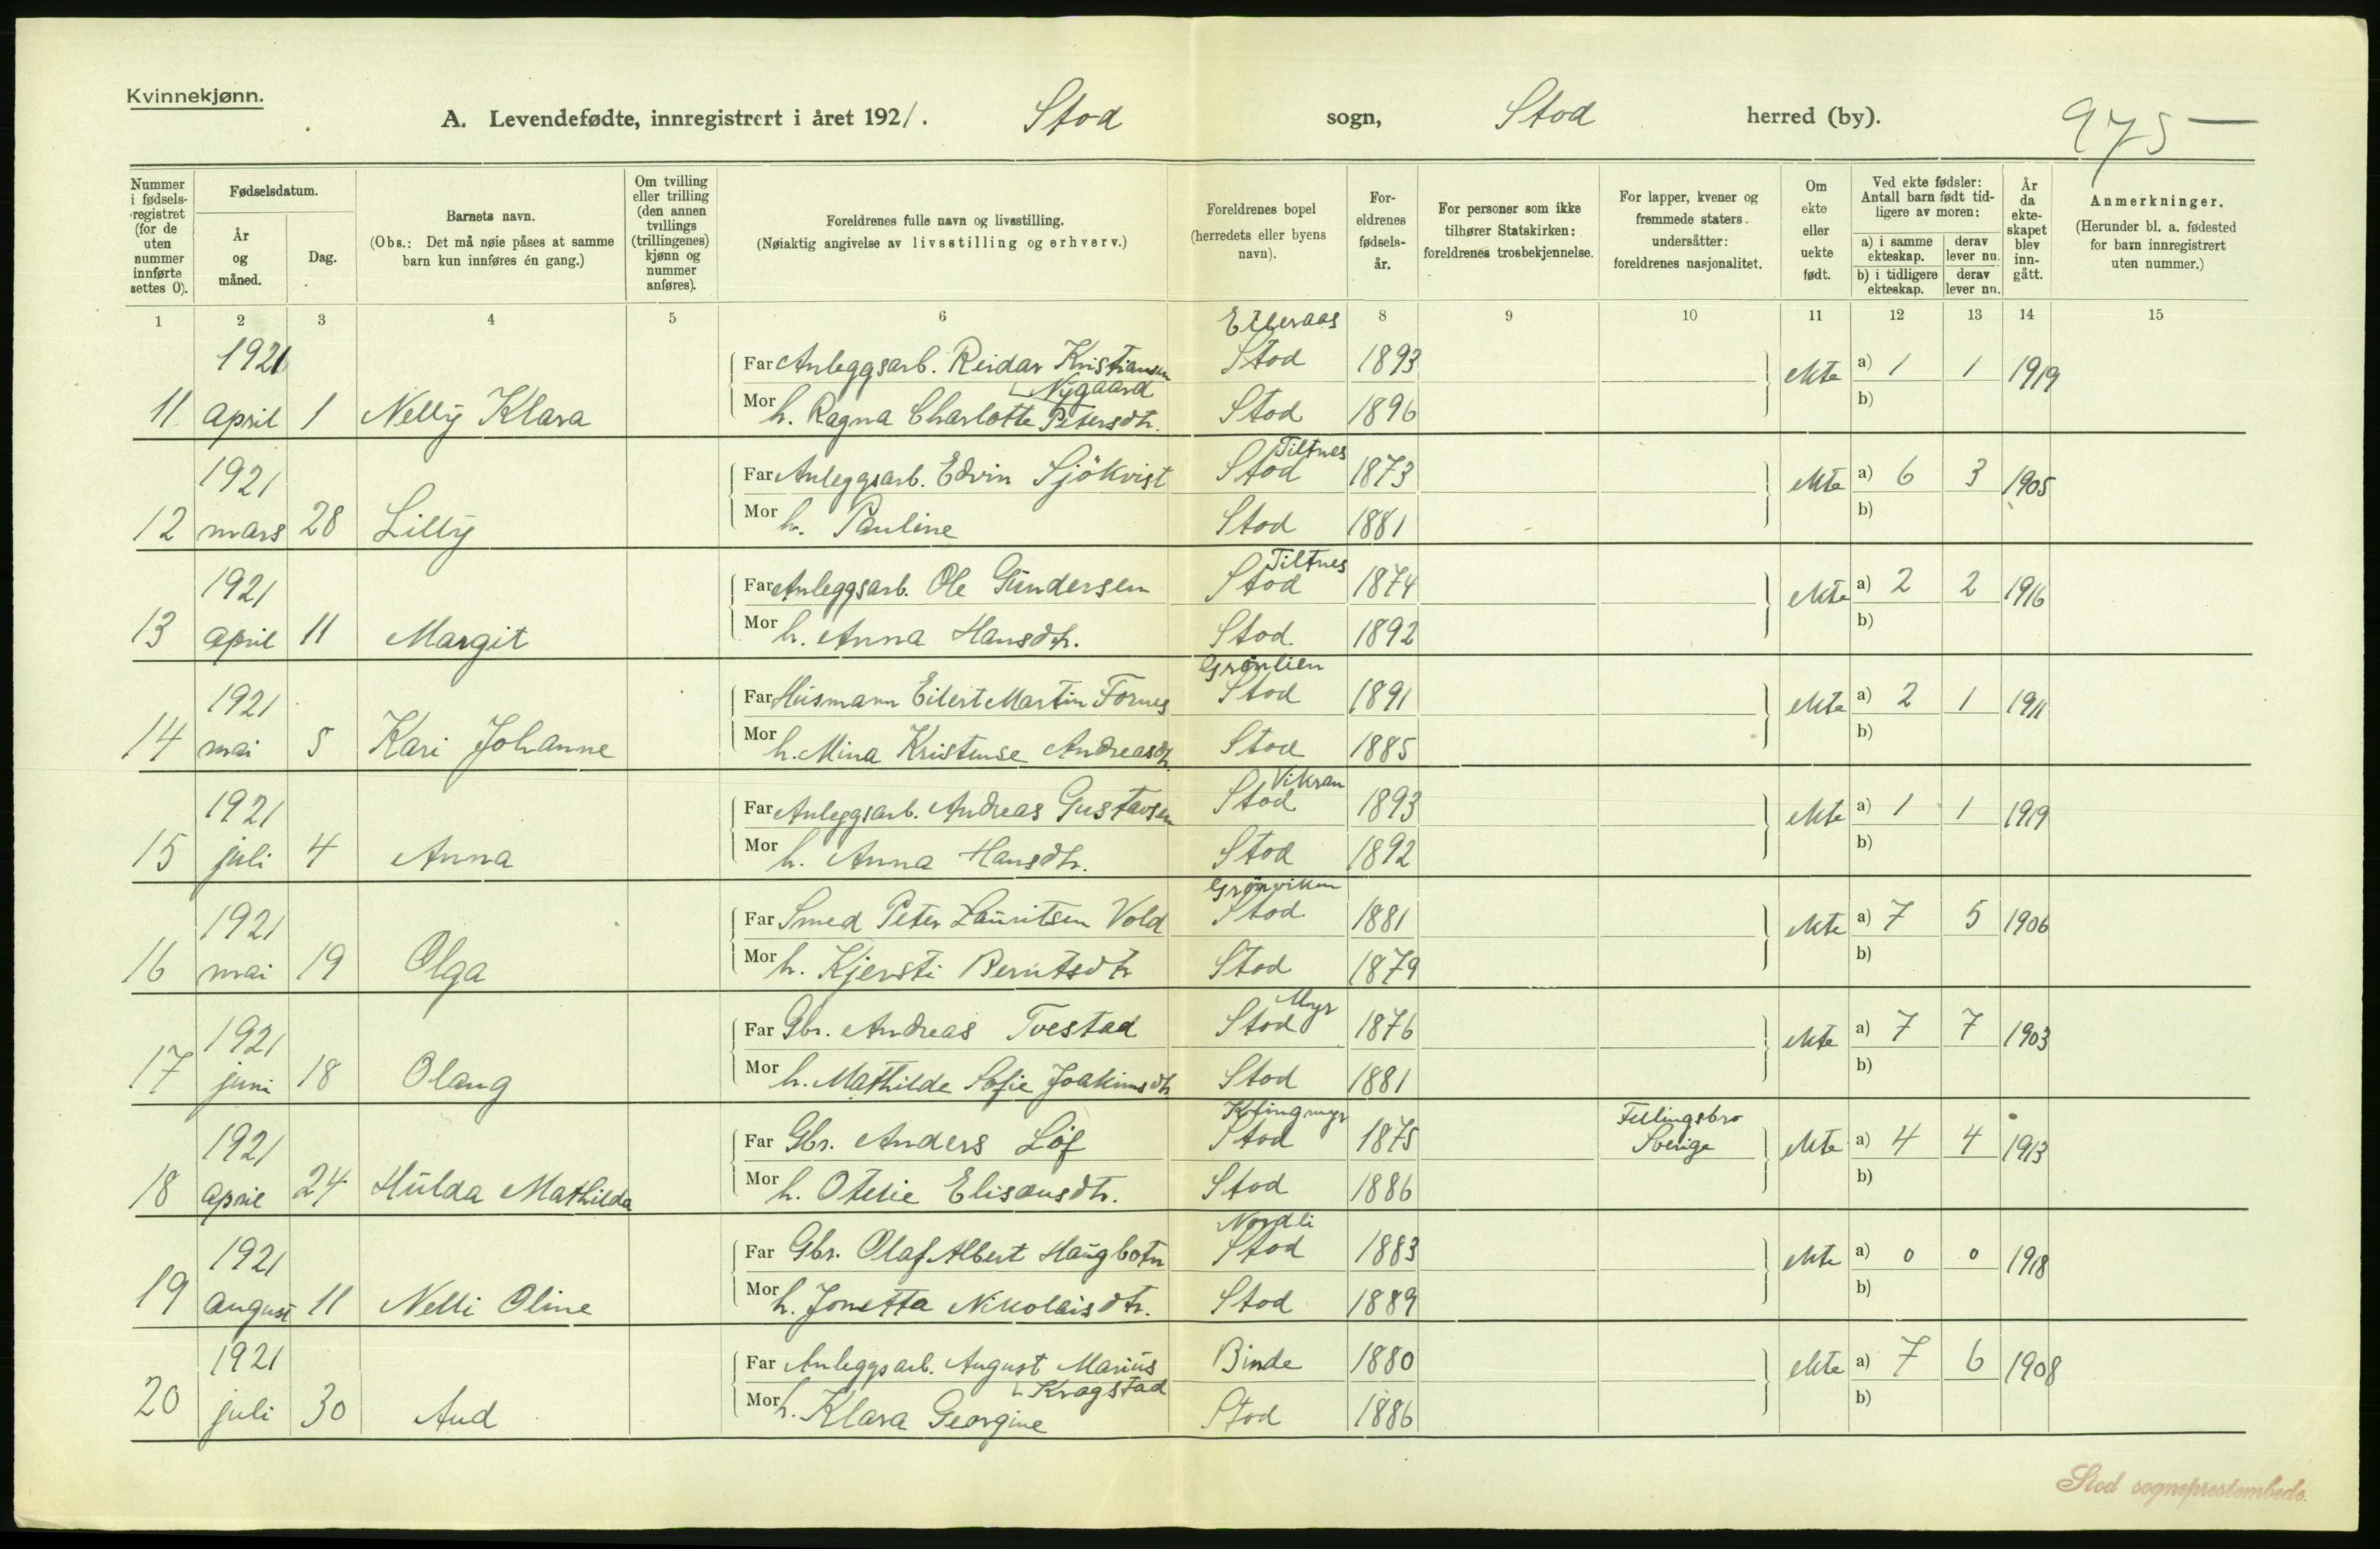 Kvinnekjønn.
A. Levendefødte, innregistrert i året 1921. Stod sogn, Stod herred (by). 975 —
Nummer i fødselsregistret (for de uten nummer innførte settes 0).
Fødselsdatum.
År og måned.
Dag.
Barnets navn.
(Obs.: Det må nøie påses at samme barn kun innføres én gang.)
Om tvilling eller trilling (den annen tvillings (trillingenes) kjønn og nummer anføres).
Foreldrenes fulle navn og livsstilling.
(Nøiaktig angivelse av livsstilling og erhverv.)
Foreldrenes bopel (herredets eller byens navn).
Foreldrenes fødselsår.
For personer som ikke tilhører Statskirken: foreldrenes trosbekjennelse.
For lapper, kvener og fremmede staters undersåtter: foreldrenes nasjonalitet.
Om ekte eller uekte født.
Ved ekte fødsler: Antall barn født tidligere av moren:
a) i samme ekteskap. derav lever nu.
b) i tidligere ekteskap. derav lever nu.
År da ekteskapet blev inngått.
Anmerkninger.
(Herunder bl. a. fødested for barn innregistrert uten nummer.)
1 2 3 4 5 6 8 9 10 11 12 13 14 15
1921 Far Anleggsarb. Reidar Kristiansen Nygaard Stod 1893 ekte a) 1 1 1919
11 april 1 Nelly Klara Mor h. Ragna Charlotte Petersdtr. Stod 1896 b)
Tiltnes
1921 Far Anleggsarb. Edvin Sjökvist Stod 1873 ekte a) 6 3 1905
12 mars 28 Lilly Mor h. Pauline Stod 1881 b)
Tiltnes
1921 Far Anleggsarb. Ole Gundersen Stod 1874 ekte a) 2 2 1916
13 april 11 Margit Mor h. Anna Hansdtr. Stod 1892 b)
Grønlien
1921 Far Husmann Eilert Martin Fornes Stod 1891 ekte a) 2 1 1911
14 mai 5 Kari Johanne Mor h. Mina Kristense Andreasdtr. Stod 1885 b)
Vikran
1921 Far Anleggsarb. Andreas Gustavsen Stod 1893 ekte a) 1 1 1919
15 juli 4 Anna Mor h. Anna Hansdtr. Stod 1892 b)
Grønviken
1921 Far Smed Peter Lauritsen Vold Stod 1881 ekte a) 7 5 1906
16 mai 19 Olga Mor h. Kjersti Berntsdtr Stod 1879 b)
Myr
1921 Far Gbr. Andreas Tvestad Stod 1876 ekte a) 7 7 1903
17 juni 18 Olaug Mor h. Mathilde Sofie Joakimsdtr Stod 1881 b)
1921 Far Gbr. Anders Löf Stod 1875 Fellingsbro Sverige ekte a) 4 4 1913
18 april 24 Hulda Mathilda Mor h. Otelie Elisausdtr. Stod 1886 b)
Nordli
1921 Far Gbr. Olaf Albert Haugbotn Stod 1883 ekte a) 0 0 1918
19 august 11 Nelli Oline Mor h. Jonetta Nikolaisdtr. Stod 1889 b)
1921 Far Anleggsarb. August Marius Kragstad Binde 1880 ekte a) 7 6 1908
20 juli 30 Aud Mor h. Klara Georgine Stod 1886 b)
Stod sogneprestembede.